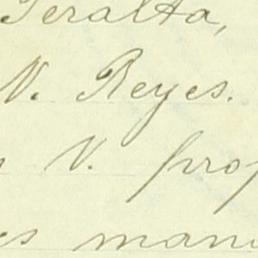 Peralta,
N. Reyes.
V. prop
es mani